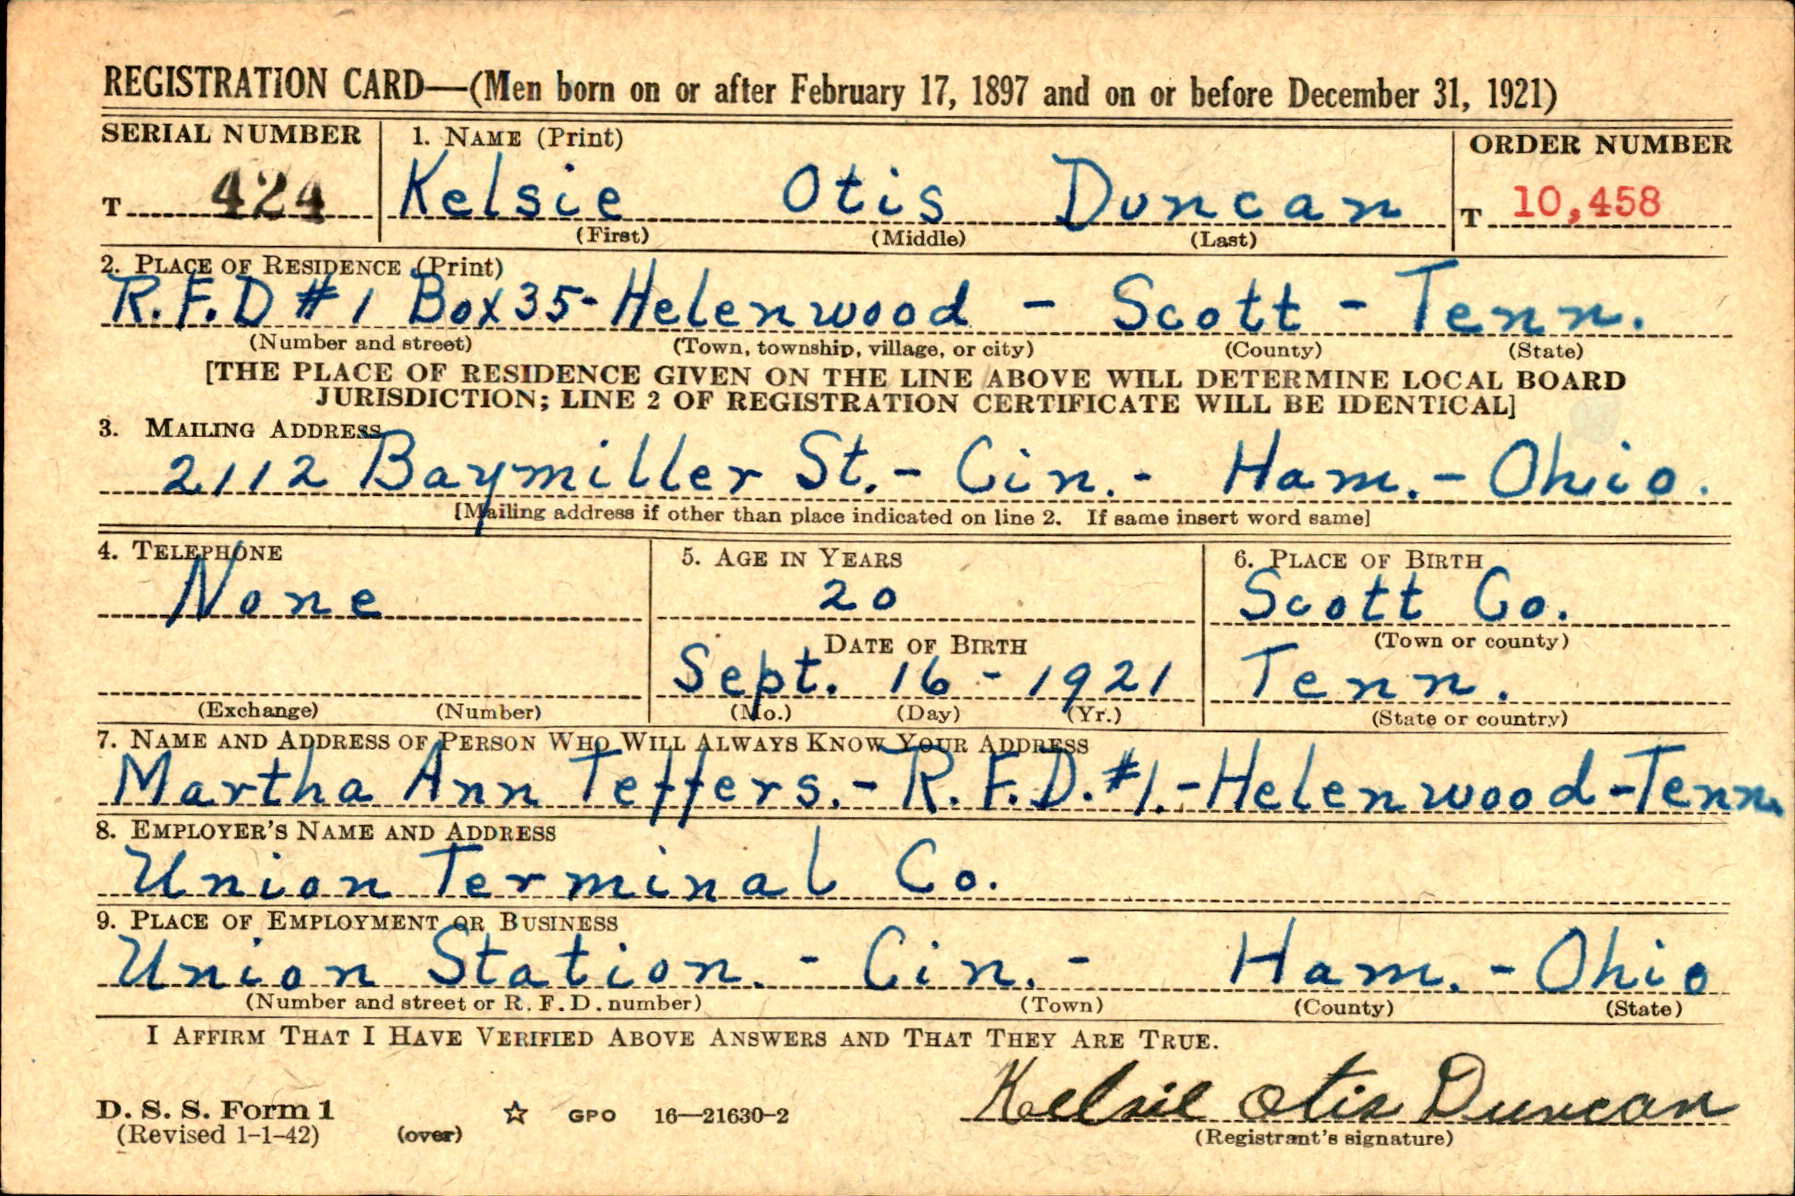 REGISTRATION CARD—(Men born on or after February 17, 1897 and on or before December 31, 1921)
SERIAL NUMBER 1. NAME (Print) ORDER NUMBER
T 424 Kelsie Otis Duncan T 10,458
(First) (Middle) (Last)
2. PLACE OF RESIDENCE (Print)
R.F.D #1 Box 35-Helenwood - Scott - Tenn.
(Number and street) (Town, township, village, or city) (County) (State)
[THE PLACE OF RESIDENCE GIVEN ON THE LINE ABOVE WILL DETERMINE LOCAL BOARD
JURISDICTION; LINE 2 OF REGISTRATION CERTIFICATE WILL BE IDENTICAL]
3. MAILING ADDRESS
2112 Baymiller St.- Cin.- Ham.- Ohio.
[Mailing address if other than place indicated on line 2. If same insert word same]
4. TELEPHONE 5. AGE IN YEARS 6. PLACE OF BIRTH
None 20 Scott Co.
DATE OF BIRTH (Town or county)
Sept. 16 - 1921 Tenn.
(Exchange) (Number) (Mo.) (Day) (Yr.) (State or country)
7. NAME AND ADDRESS OF PERSON WHO WILL ALWAYS KNOW YOUR ADDRESS
Martha Ann Teffers.- R.F.D.#1.-Helenwood-Tenn.
8. EMPLOYER'S NAME AND ADDRESS
Union Terminal Co.
9. PLACE OF EMPLOYMENT OR BUSINESS
Union Station. - Cin. - Ham. - Ohio
(Number and street or R. F. D. number) (Town) (County) (State)
I AFFIRM THAT I HAVE VERIFIED ABOVE ANSWERS AND THAT THEY ARE TRUE.
Kelsie Otis Duncan
D. S. S. Form 1 GPO 16—21630-2
(Revised 1-1-42) (over) (Registrant's signature)